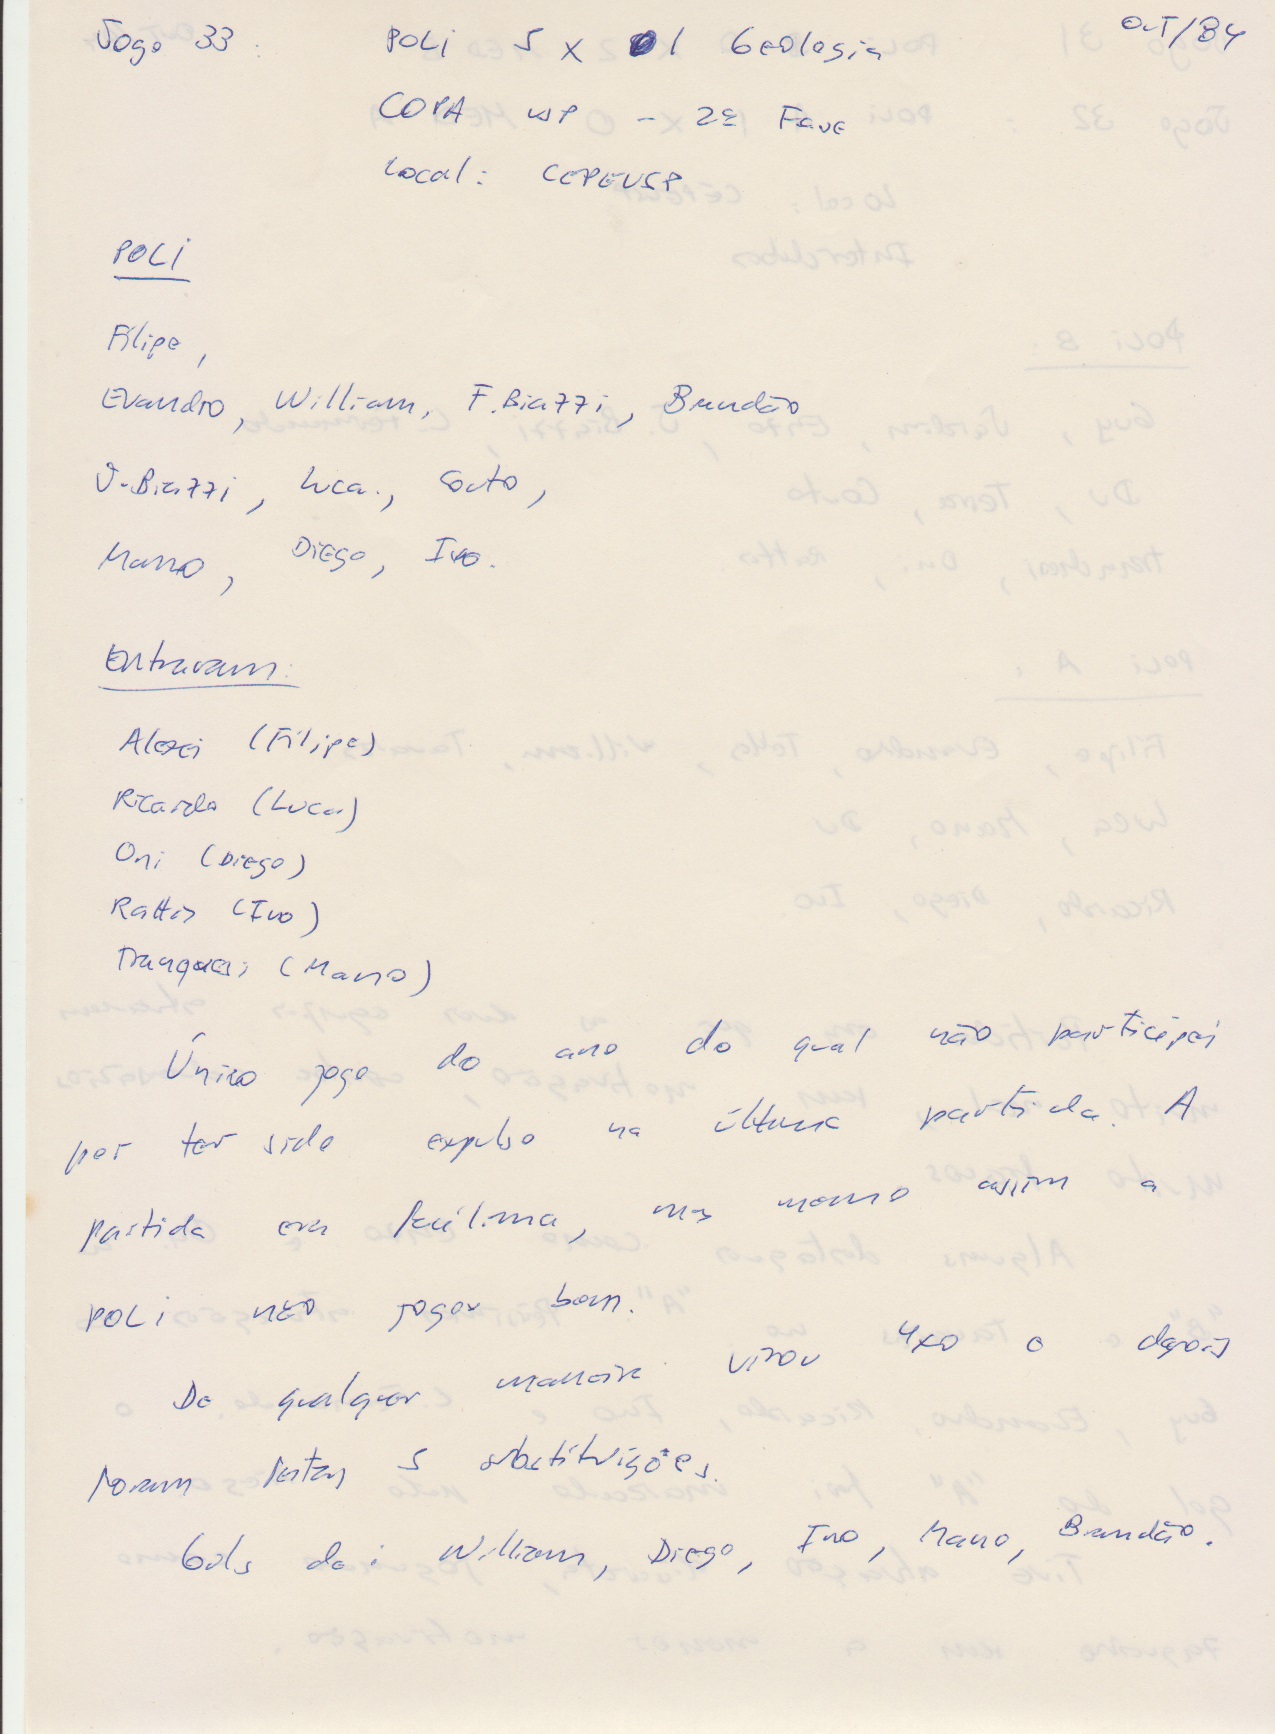 Jogo 33 : POLI 5 X 1 Geologia OUT/84
COPA USP - 2ª Fase
Local: CEPEUSP
POLI
Filipe,
Evandro, William, F. Biazzi, Brandão
J. Biazzi, Luca, Couto,
Mano, Diego, Ivo.
Entraram:
Alexei (Filipe)
Ricardo (Luca)
Oni (Diego)
Rattis (Ivo)
(Mano)
Único jogo do ano do qual não participei
por ter sido expulso na última partida. A
partida era facílima, mas mesmo assim a
POLI não jogou bem.
De qualquer maneira virou 4x0 e depois
foram feitas 5 substituições.
Gols de: William, Diego, Ivo, Mano, Brandão.